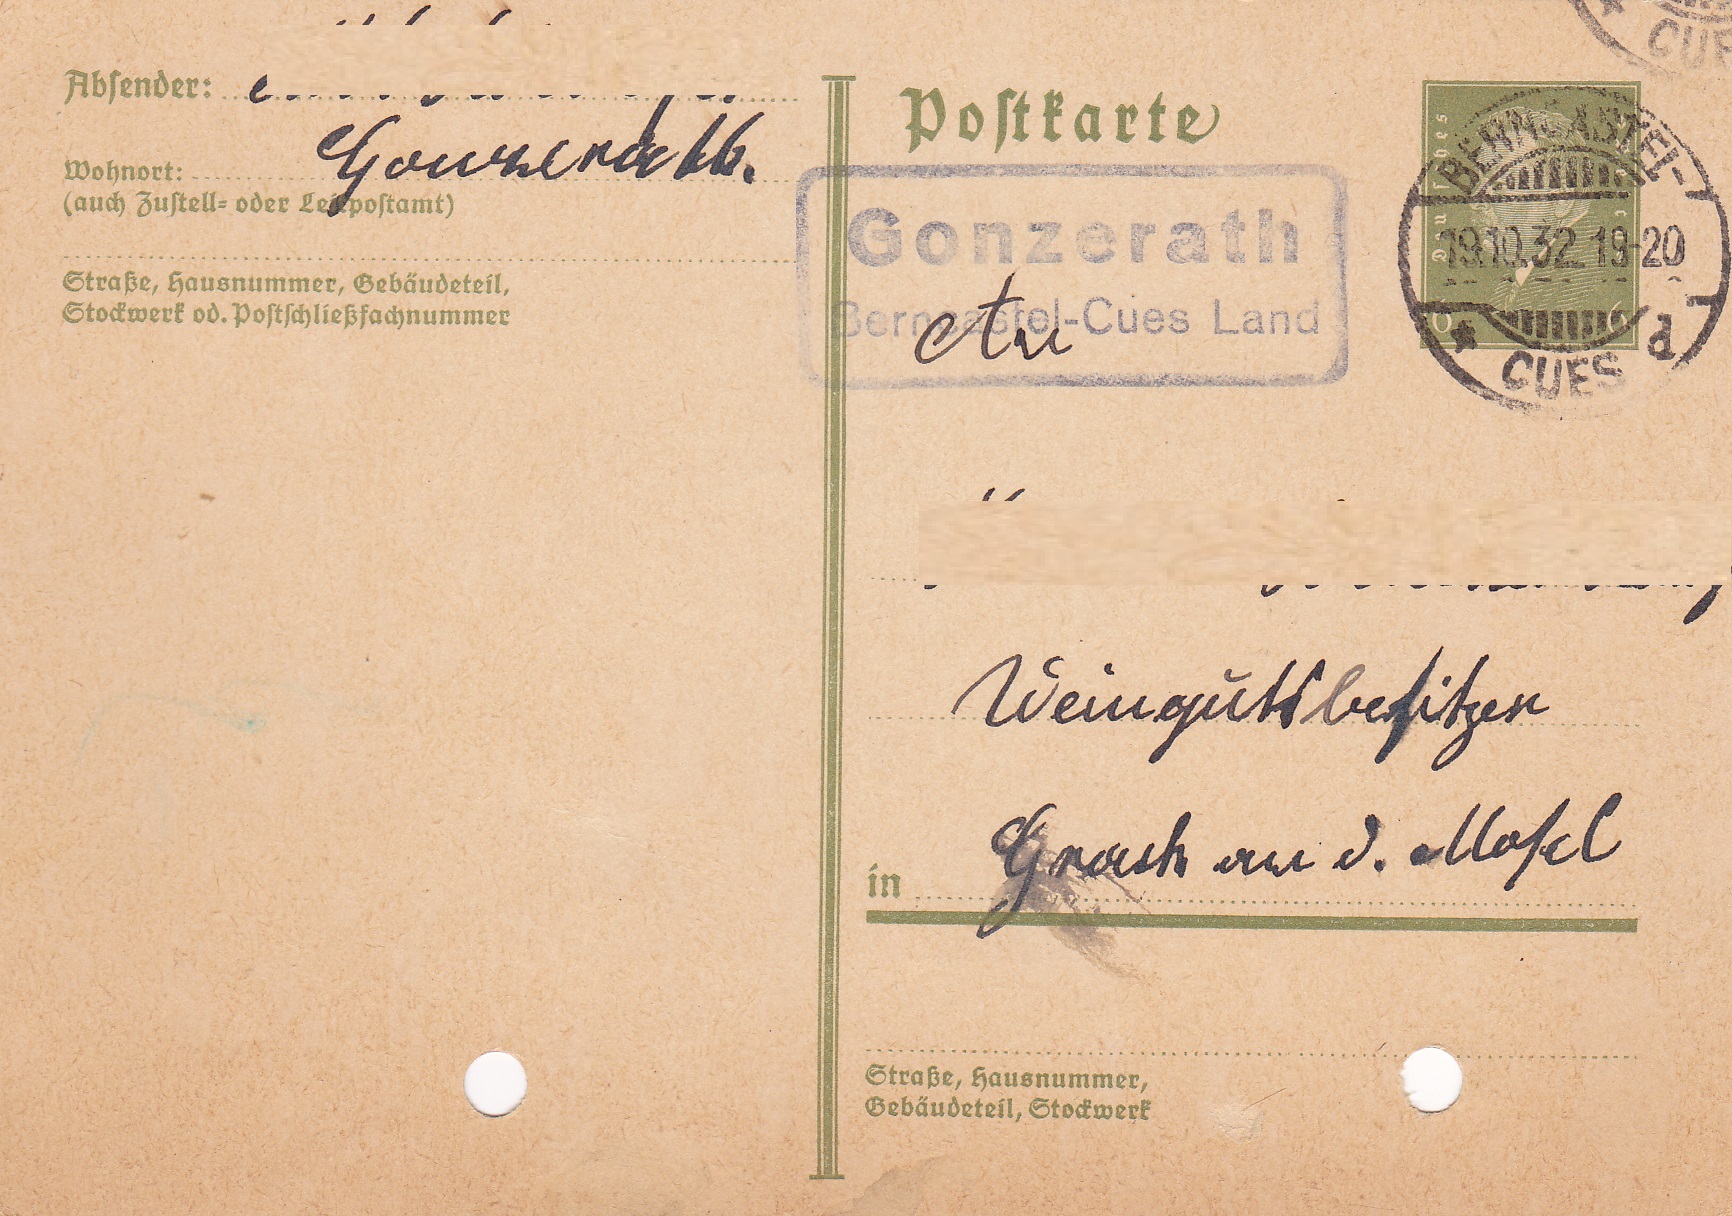 Absender:
Gonzerath.
Wohnort:
(auch Zustell- oder Leitpostamt)
Straße, Hausnummer, Gebäudeteil,
Stockwerk od. Postschließfachnummer
Postkarte
Gonzerath
Bernkastel-Cues Land
BERNCASTEL-
19.10.32. 19-20
* d
CUES
CUES
An
Weingutsbesitzer
in Grach an d. Mosel
Straße, Hausnummer,
Gebäudeteil, Stockwerk